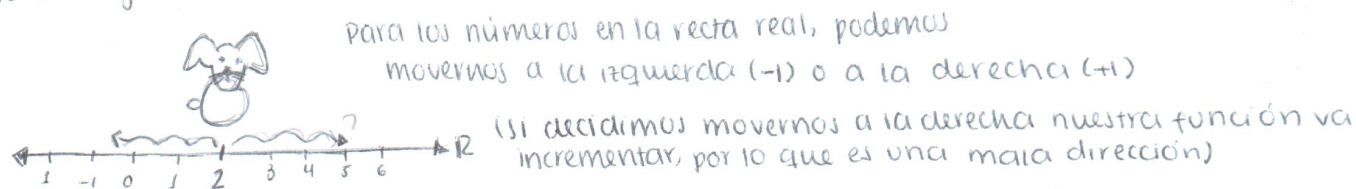 Para los números en la recta real, podemos
movernos a la izquierda (-1) o a la derecha (+1)
(si decidimos movernos a la derecha nuestra función va
incrementar, por lo que es una mala dirección)
?
R
1 -1 0 1 2 3 4 5 6